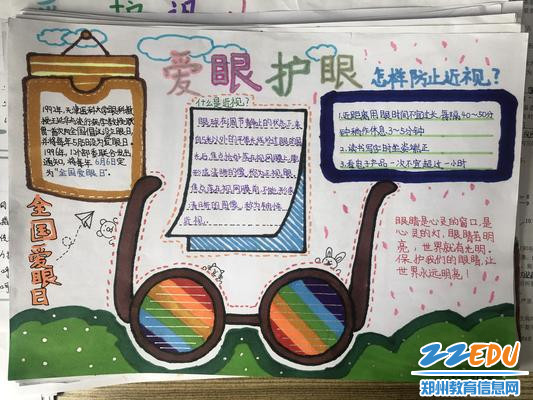 爱眼护眼
怎样防止近视?
什么是近视?
1992年,天津医科大学眼科教
授王延华与流行病学教授耿贯
一首次向全国倡议设立眼日
并将每年5月5日定为爱眼日。
1996年,12个部委联合发出
通知,将每年6月6日定
为"全国爱眼日"。
眼球在调节静止的状态下,来
系统后,焦点恰好落在视网膜上,能
形成清晰的像,称为正视眼。
焦点落在视网膜前,不能形成
清晰的图像,称为轴性
近视。
1.近距离用眼时间不宜过长,每隔40~50分
钟稍作休息3~5分钟
2.读书写字时坐姿端正
3.看电子产品一次不宜超过一小时
全国爱眼日
眼睛是心灵的窗口,是
心灵的灯,眼睛若明
亮,世界就有光明。
保护我们的眼睛,让
世界永远明亮!
22EDU
郑州教育信息网